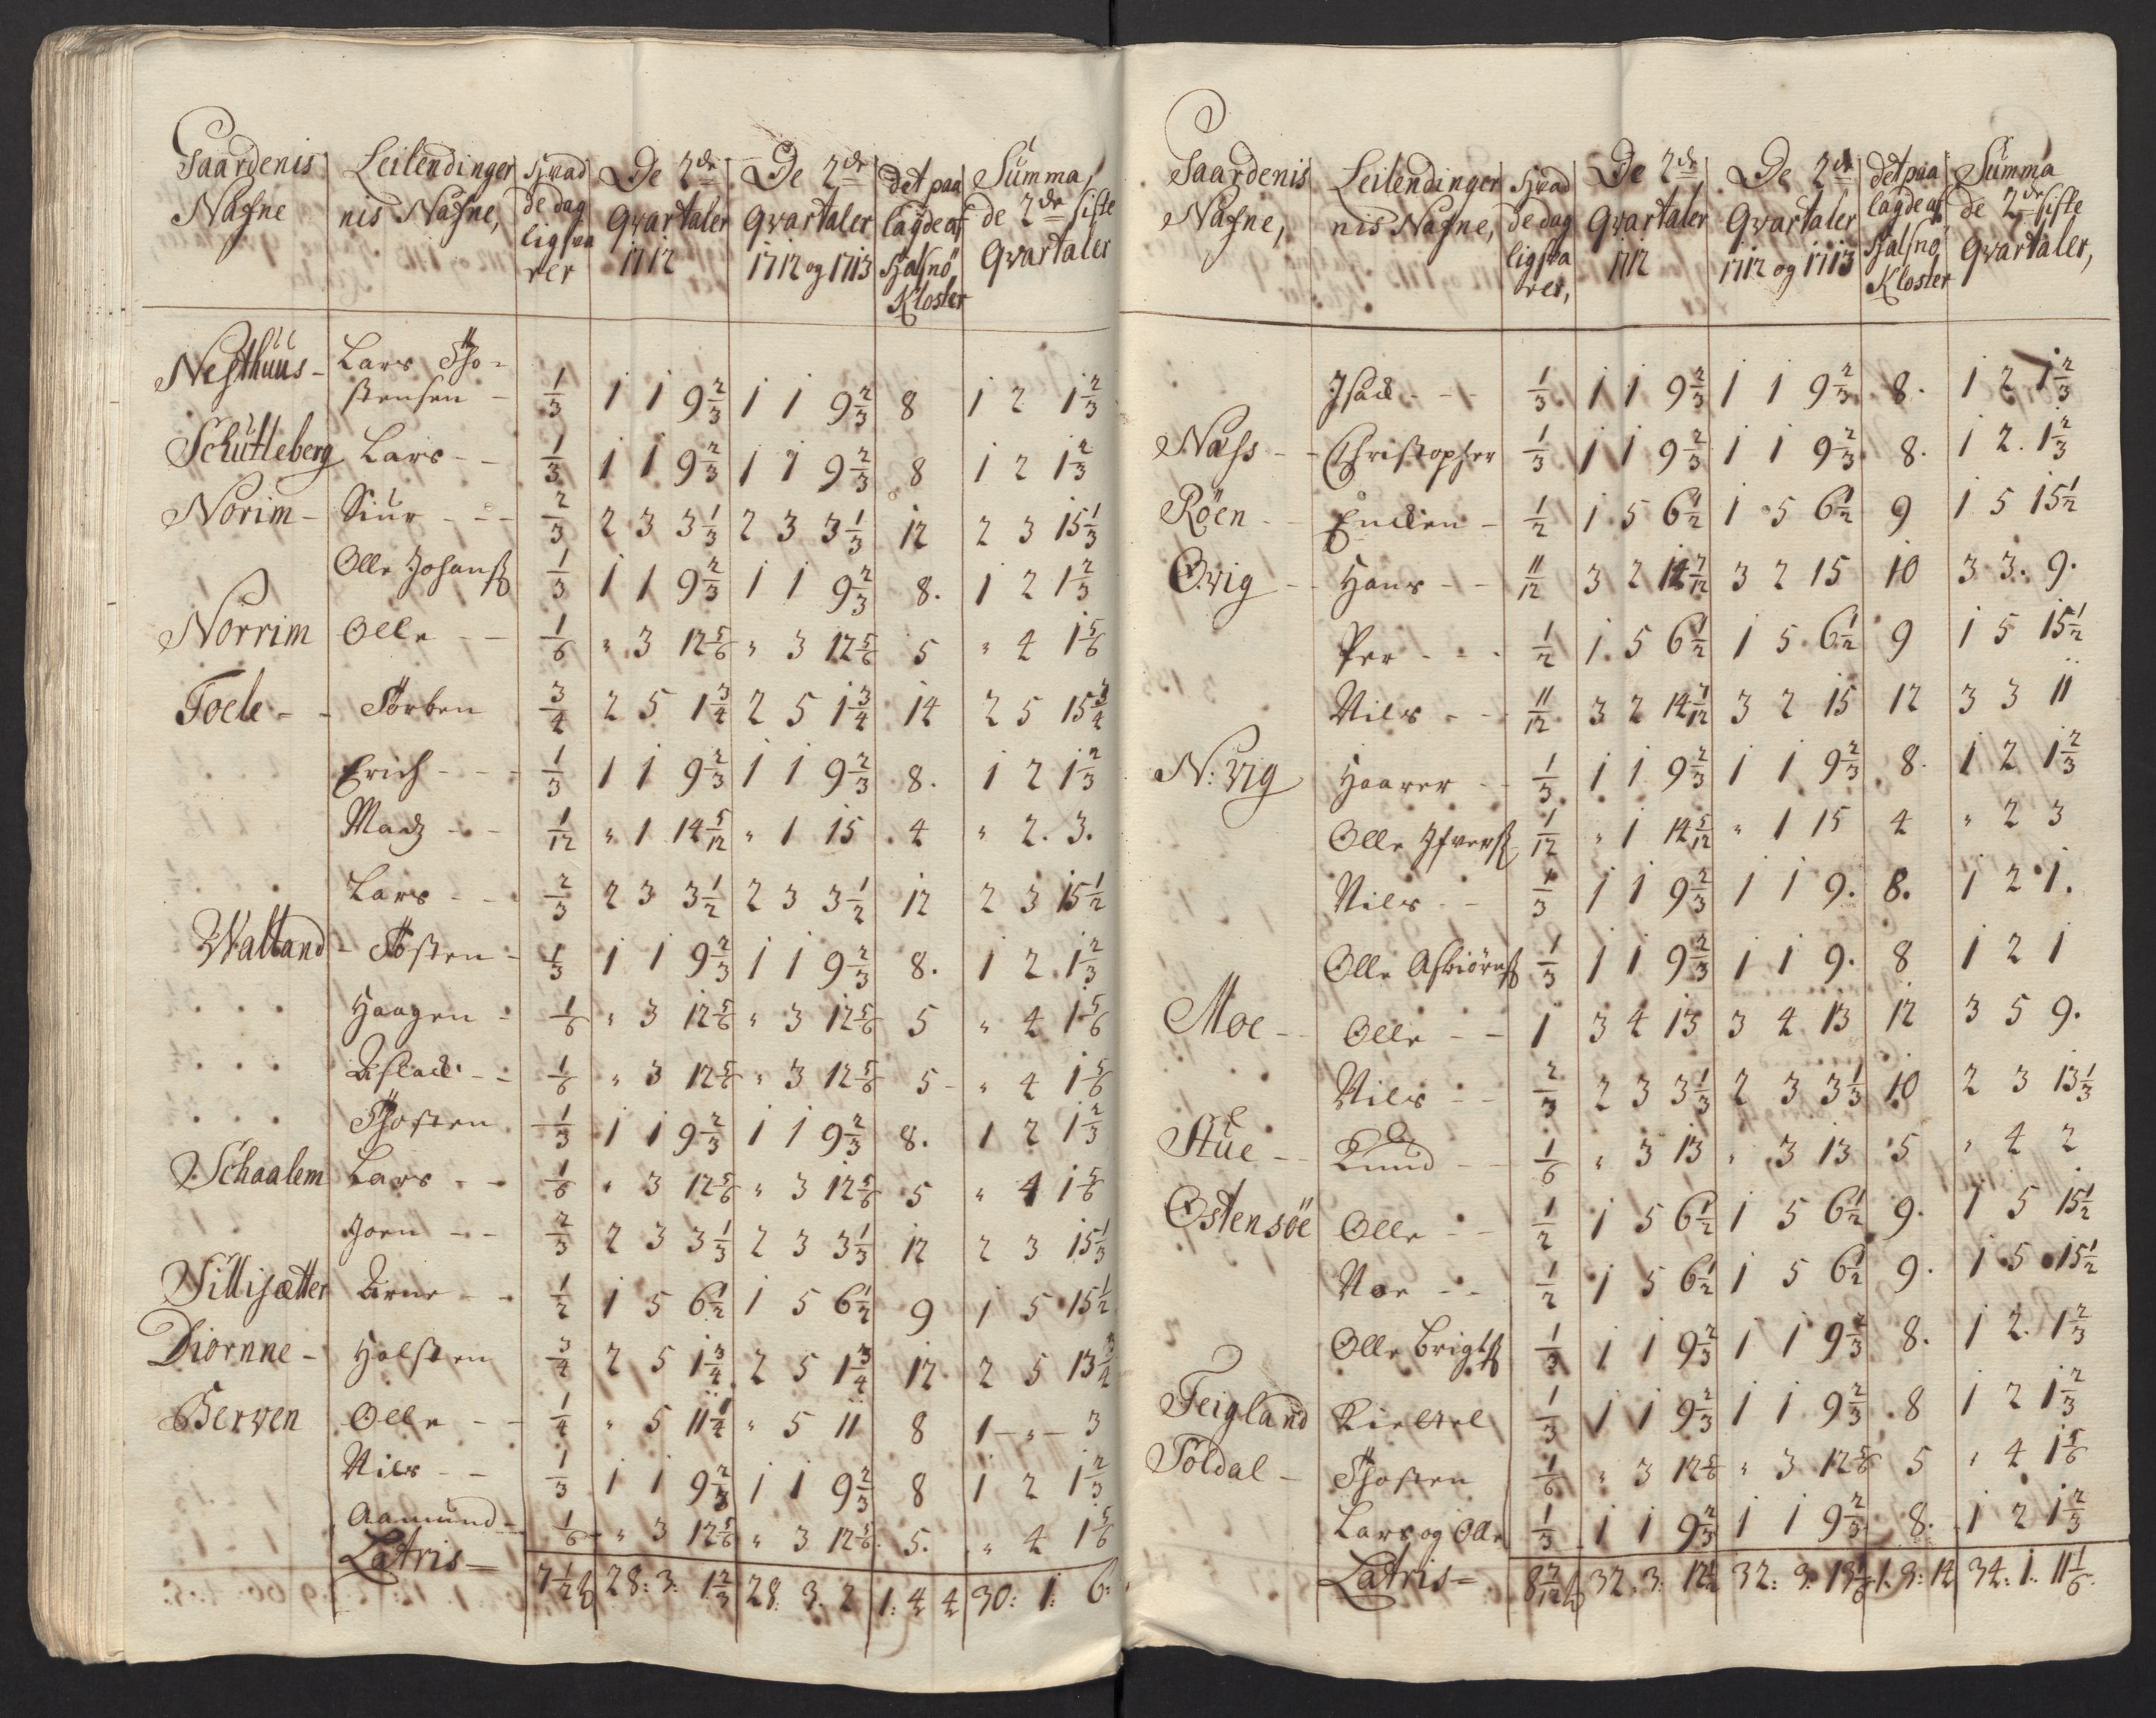 Gaardenis Nafne | Leilendinger nis Nafne, | Hvad de dag ligsva rer | De 2de Qvartaler 1712 | De 2de Qvartaler 1712 og 1713 | det paa lagde af Halsnö Kloster | Summa de 2de siste Qvartaler
Nesthuus - Lars Tho-
stensen - 1/3 | 1 1 9 2/3 | 1 1 9 2/3 | 8 | 1 2 1 2/3
Schutleberg Lars - - 1/3 | 1 1 9 2/3 | 1 1 9 2/3 | 8 | 1 2 1 2/3
Norim - Siur - - - 2/3 | 2 3 3 1/3 | 2 3 3 1/3 | 12 | 2 3 15 1/3
Olle Johanss 1/3 | 1 1 9 2/3 | 1 1 9 2/3 | 8. | 1 2 1 2/3
Norrim Olle - - 1/6 | " 3 12 5/6 | " 3 12 5/6 | 5 | " 4 1 5/6
Toele - - Torben 3/4 | 2 5 1 3/4 | 2 5 1 3/4 | 14 | 2 5 15 3/4
Erich - - - 1/3 | 1 1 9 2/3 | 1 1 9 2/3 | 8. | 1 2 1 2/3
Madz - - 1/12 | " 1 14 5/12 | " 1 15 | 4 | " 2. 3.
Lars - - 2/3 | 2 3 3 1/2 | 2 3 3 1/2 | 12 | 2 3 15 1/2
Walland - Tosten - 1/3 | 1 1 9 2/3 | 1 1 9 2/3 | 8. | 1 2 1 2/3
Haagen - 1/6 | " 3 12 5/6 | " 3 12 5/6 | 5 | " 4 1 5/6
Aslack - - 1/6 | " 3 12 5/6 | " 3 12 5/6 | 5 - | " 4 1 5/6
Thosten 1/3 | 1 1 9 2/3 | 1 1 9 2/3 | 8. | 1 2 1 2/3
Schaalem Lars - - 1/6 | " 3 12 5/6 | " 3 12 5/6 | 5 | " 4 1 5/6
Joen - - 2/3 | 2 3 3 1/3 | 2 3 3 1/3 | 12 | 2 3 15 1/3
Villisætter Arne - - 1/2 | 1 5 6 1/2 | 1 5 6 1/2 | 9 | 1 5 15 1/2
Diornne - Holsten 3/4 | 2 5 1 3/4 | 2 5 1 3/4 | 12 | 2 5 13 3/4
Berven Olle - - 1/4 | " 5 11 1/4 | " 5 11 | 8 | 1 - " - 3
Nils - - 1/3 | 1 1 9 2/3 | 1 1 9 2/3 | 8 | 1 2 1 2/3
Aamund - 1/6 | " 3 12 5/6 | " 3 12 5/6 | 5. | " 4 1 5/6
Latris = 7 1/2 | 28: 3: 1 2/3 | 28 3. 2 | 1: 4 4 | 30: 1: 6:
Gaardenis Nafne, | Leilendinger nis Nafne, | Hvad de dag ligsva rer, | De 2de Qvartaler 1712 | De 2de Qvartaler 1712 og 1713 | det paa lagde af Halsnö Kloster | Summa de 2de siste Qvartaler,
Isack - - 1/3 | 1 1 9 2/3 | 1 1 9 2/3 | 8. | 1 2 1 2/3
Næss - - Christopher 1/3 | 1 1 9 2/3 | 1 1 9 2/3 | 8. | 1 2. 1 2/3
Röen - - - 1/2 | 1 5 6 1/2 | 1 5 6 1/2 | 9 | 1 5 15 1/2
Ö:vig - - Hans - - 11/12 | 3 2 14 7/12 | 3 2 15 | 10 | 3 3. 9.
Per - - - 1/2 | 1. 5 6 1/2 | 1 5 6 1/2 | 9 | 1 5 15 1/2
Nils - - 11/12 | 3 2 14 7/12 | 3 2 15 | 12 | 3 3 11
N: vig Haarer - - 1/3 | 1 1 9 2/3 | 1 1 9 2/3 | 8. | 1 2 1 2/3
Olle Iferss 1/12 | " 1 14 5/12 | " 1 15 | 4 | " 2 3
Nils - - 1/3 | 1 1 9 2/3 | 1 1 9. | 8. | 1 2 1.
Olle Asbiörnss 1/3 | 1 1 9 2/3 | 1 1 9. | 8 | 1 2 1
Moe - - Olle - - 1 | 3 4 13 | 3 4 13 | 12 | 3 5 9.
Nils - - 2/3 | 2 3 3 1/3 | 2 3 3 1/3 | 10 | 2 3 13 1/3
Stue - - Knud - - 1/6 | " 3 13 | " 3 13 | 5 | " 4 2
Östensöe Olle - - 1/2 | 1 5 6 1/2 | 1 5 6 1/2 | 9. | 1 5 15 1/2
- - 1/2 | 1 5 6 1/2 | 1 5 6 1/2 | 9. | 1 5 15 1/2
Olle Brigtss 1/3 | 1 1 9 2/3 | 1 1 9 2/3 | 8. | 1 2. 1 2/3
Teigland Kieltel 1/3 | 1 1 9 2/3 | 1 1 9 2/3 | 8 | 1 2 1 2/3
Toldal - Thosten 1/6 | " 3 12 5/6 | " 3 12 5/6 | 5 | " 4 1 5/6
Lars og Olle 1/3 | 1 1 9 2/3 | 1 1 9 2/3 | 8. | 1 2 1 2/3
Latris = 8 7/12 | 32: 3: 12 1/2 | 32: 3: 13 1/6 | 1. 3: 14 | 34: 1. 11 1/6.